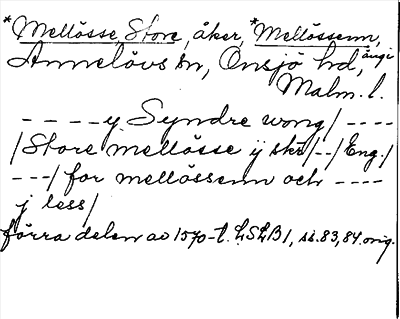 *Mellösse, Store, åker, *Mellössenn, äng i
Annelövs sn, Onsjö hd,
Malm. l.
- - - - y Syndre wong/ - - - -
/Store mellösse ÿ skr/--/Eng./
---/ for mellössenn och - - - -
j less/
förra delen av 1570-t. LSLB1, ss. 83, 84 orig.